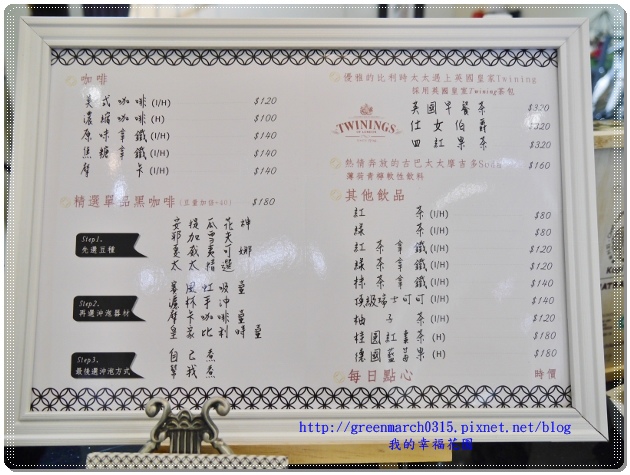 咖啡
美式咖啡(I/H) $120
濃縮咖啡(H) $100
原味拿鐵(I/H) $140
焦糖拿鐵(I/H) $140
摩卡(I/H) $140
精選單品黑咖啡 $180
Step1.
先選豆種
安提瓜花神
耶加雪夫
曼巴
太太精選
Step2.
再選沖泡器材
賽風虹吸壺
濾杯手沖
摩卡咖啡壺
皇家比利時壺
Step3.
最後選沖泡方式
自己煮
幫我煮
優雅的比利時太太遇上英國皇家Twining
採用英國皇室Twining茶包
TWININGS
英國早餐茶 $320
仕女伯爵 $320
四紅果茶 $320
熱情奔放的古巴太太摩吉多Soda $160
薄荷青檸軟性飲料
其他飲品
紅茶(I/H) $80
綠茶(I/H) $80
紅茶拿鐵(I/H) $120
綠茶拿鐵(I/H) $120
抹茶拿鐵(I/H) $140
頂級瑞士可可(I/H) $140
柚子茶(I/H) $120
桂圓紅棗茶(H) $180
德國藍莓果(H) $180
每日點心 時價
http://greenmarch0315.pixnet.net/blog
我的幸福花園